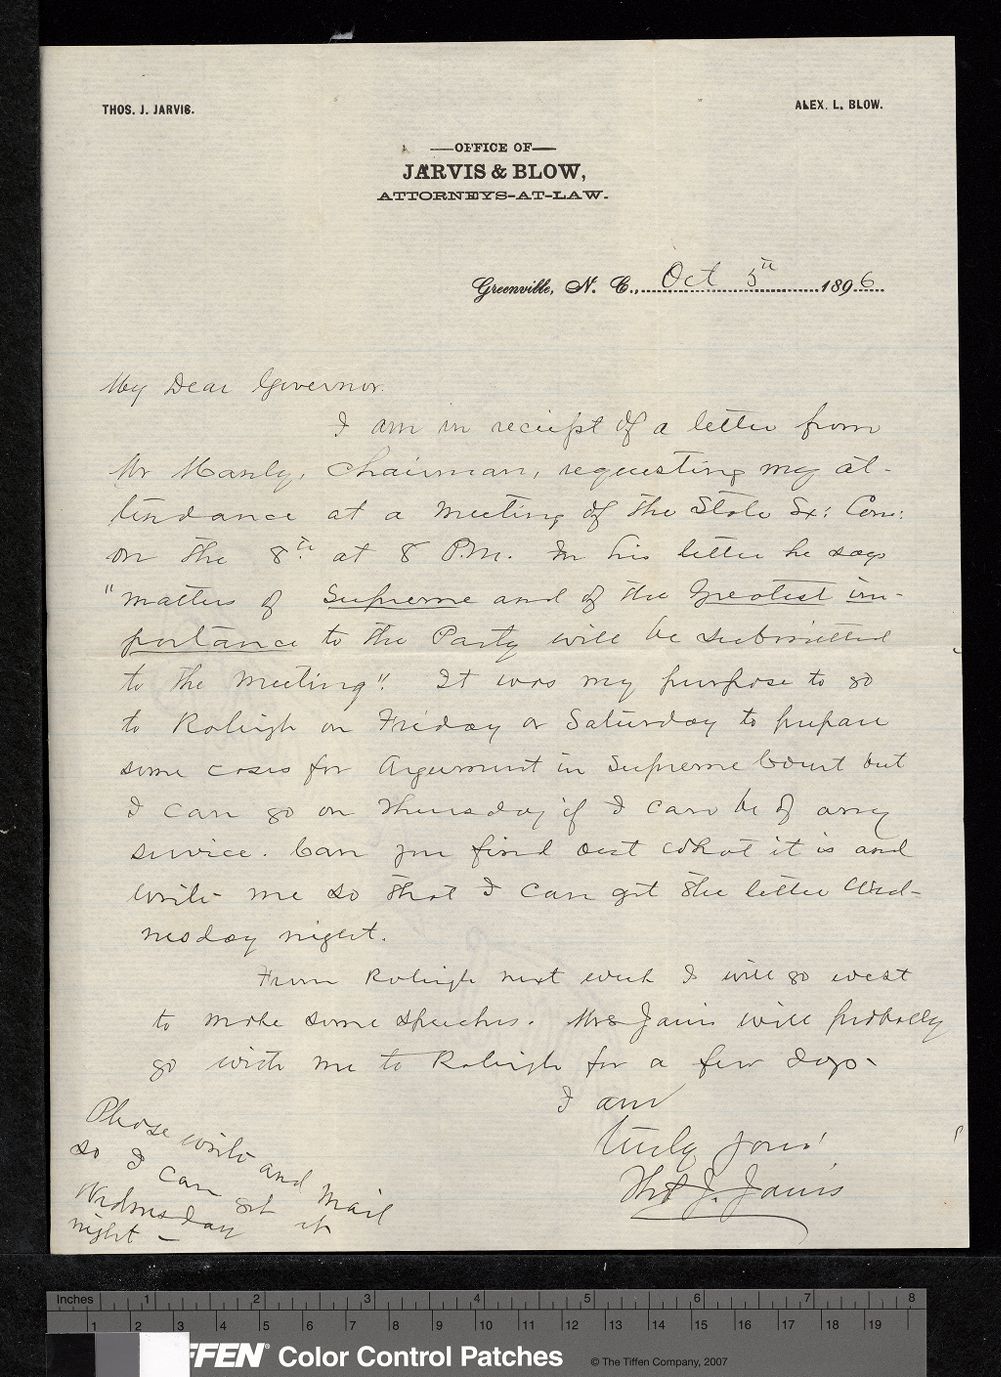 THOS. J. JARVIS.
ALEX. L. BLOW.
OFFICE OF
JARVIS & BLOW,
ATTORNEYS-AT-LAW.
Greenville, N. C., Oct 5th 1896
My Dear Governor.
I am in receipt of a letter from
Mr Manly, Chairman, requesting my at-
tendance at a meeting of the State Ex: Com:
on the 8th at 8 P.M. In his letter he says
"matters of Supreme and of the Greatest im-
portance to the Party will be submitted
to the meeting". It was my purpose to go
to Raleigh on Friday or Saturday to prepare
some cases for Argument in Supreme Court but
I can go on Thursday if I can be of any
service. Can you find out what it is and
write me so that I can get the letter Wed-
nesday night.
From Raleigh next week I will go west
to make some speeches. Mrs Jarvis will probally
go with me to Raleigh for a few days-
I am
Truly yours
Thos J. Jarvis
Please write and mail
so I can get it
Wednesday
night -
Inches 1 2 3 4 5 6 7 8
1 2 3 4 5 6 7 8 9 10 11 12 13 14 15 16 17 18 19
FFEN® Color Control Patches © The Tiffen Company, 2007